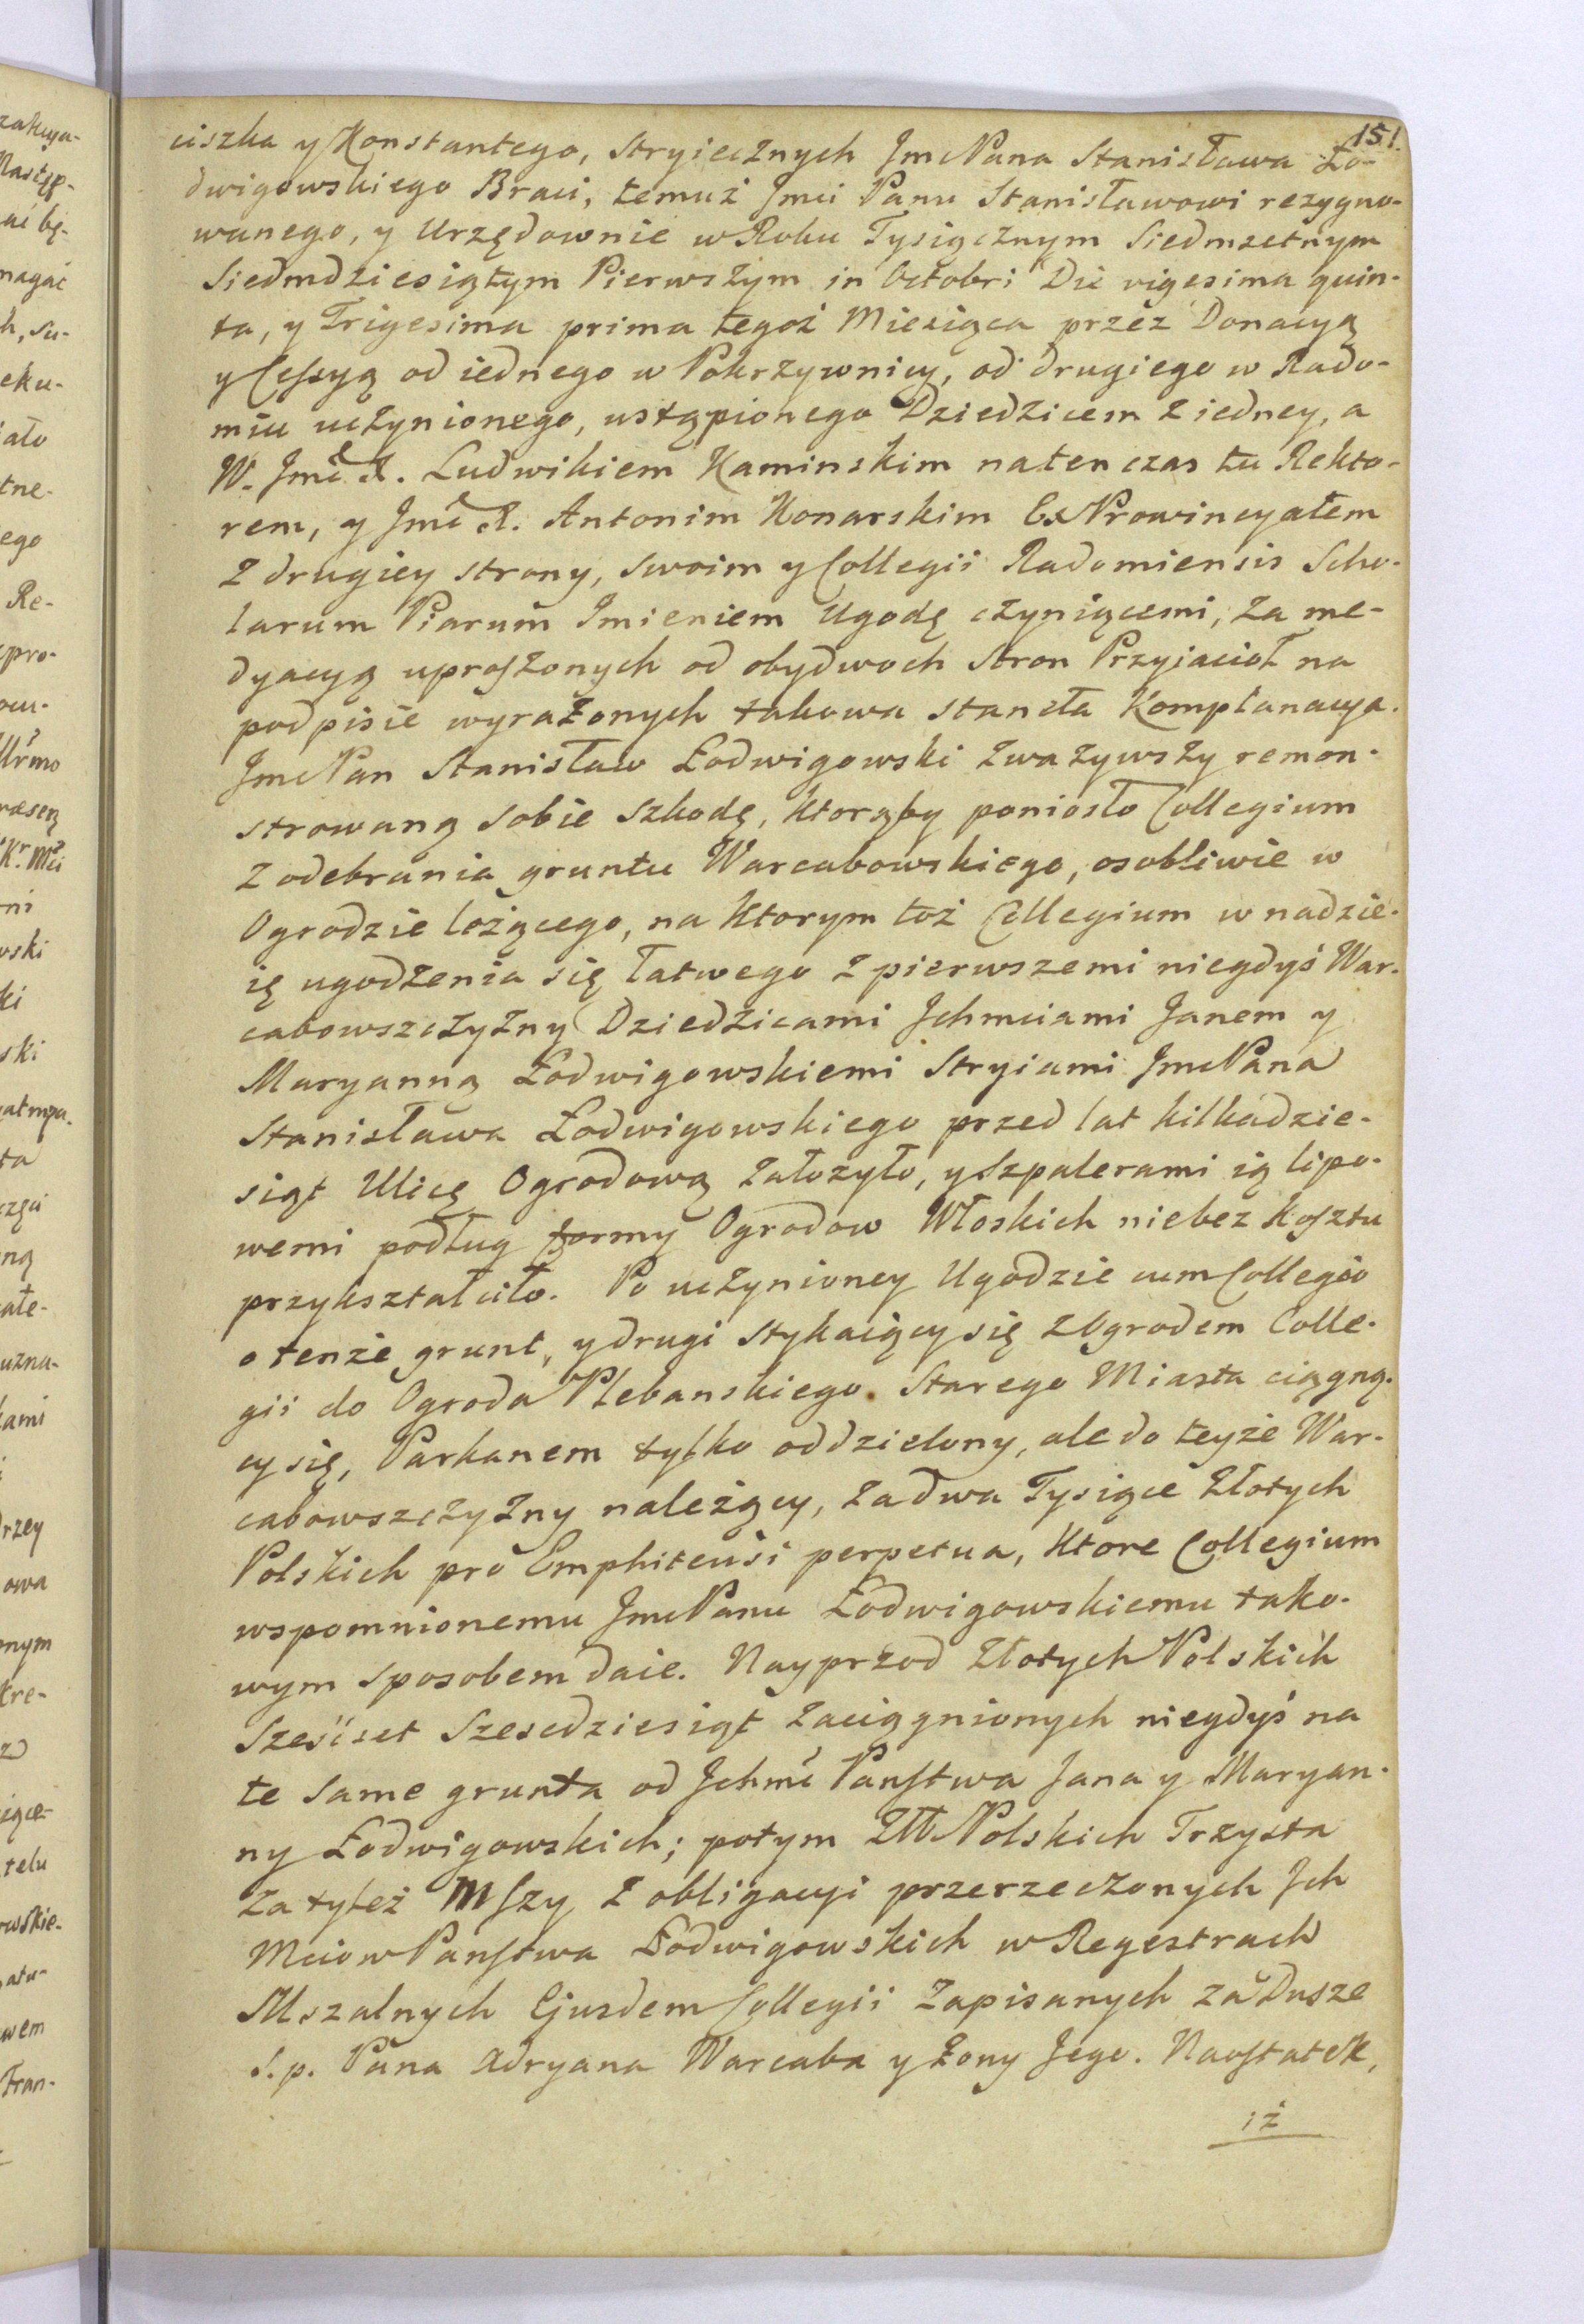 151.
ciszka y Konstantego, Stryiecznych JmcPana Stanisława Ło-
dwigowskiego Braci, temuż Jmci Panu Stanisławowi rezygno-
wanego, y Urzędownie w Roku Tysiącznym Siedmsetnym
Siedmdziesiątym Pierwszym in Octobri Die vigesima quin-
ta, y Trigesima prima tegoż Miesiąca przez Donacyą
y Cessyą od iednego w Pokrzywnicy, od drugiego w Rado-
miu uczynionego, ustąpionego Dziedzicem z iedney, a
W. Jmć X. Ludwikiem Kaminskim natenczas tu Rekto-
rem, y Jmć X. Antonim Konarskim ExProwincyałem
z drugiey strony, swoim y Collegii Radomiensis Scho-
larum Piarum Imieniem Ugodę czyniącemi, za me-
dyacyą uproszonych od obydwoch Stron Przyiacioł na
podpisie wyrażonych takowa staneła Komplanacya.
JmcPan Stanisław Łodwigowski zważywszy remon-
strowaną sobie szkodę, ktorąby poniosło Collegium
z odebrania gruntu Warcabowskiego, osobliwie w
Ogrodzie leżącego, na ktorym toż Collegium w nadzie-
ię ugodzenia się łatwego z pierwszemi niegdyś War-
cabowszczyzny Dziedzicami Jchmciami Janem y
Maryanną Łodwigowskiemi Stryiami JmcPana
Stanisława Łodwigowskiego przed lat kilkadzie-
siąt Ulicę Ogrodową założyło, y Szpalerami ią lipo-
wemi podług formy Ogrodow Włoskich niebez kosztu
przykształciło. Po uczynioney Ugodzie cum Collegio
o tenże grunt, y drugi stykaiący się z Ogrodem Colle-
gii do Ogroda Plebanskiego Starego Miasta ciągną-
cy się, Parkanem tylko oddzielony, ale do teyże War-
cabowszczyzny należący, za dwa Tysiące Złotych
Polskich pro Emphiteusi perpetua, ktore Collegium
wspomnionemu JmcPanu Łodwigowskiemu tako-
wym sposobem daie. Nayprzod Złotych Polskich
Sześćset Szescdziesiąt zaciągnionych niegdyś na
te same grunta od Jchmć Panstwa Jana y Maryan-
ny Łodwigowskich; potym Złł Polskich Trzysta
za tyleż Mszy z obligacyi przerzeczonych Jch
Mciow Panstwa Łodwigowskich w Regestrach
Mszalnych Ejusdem Collegii zapisanych za Dusze
S.p. Pana Adryana Warcaba y Żony Jego. Naostatek,
iż